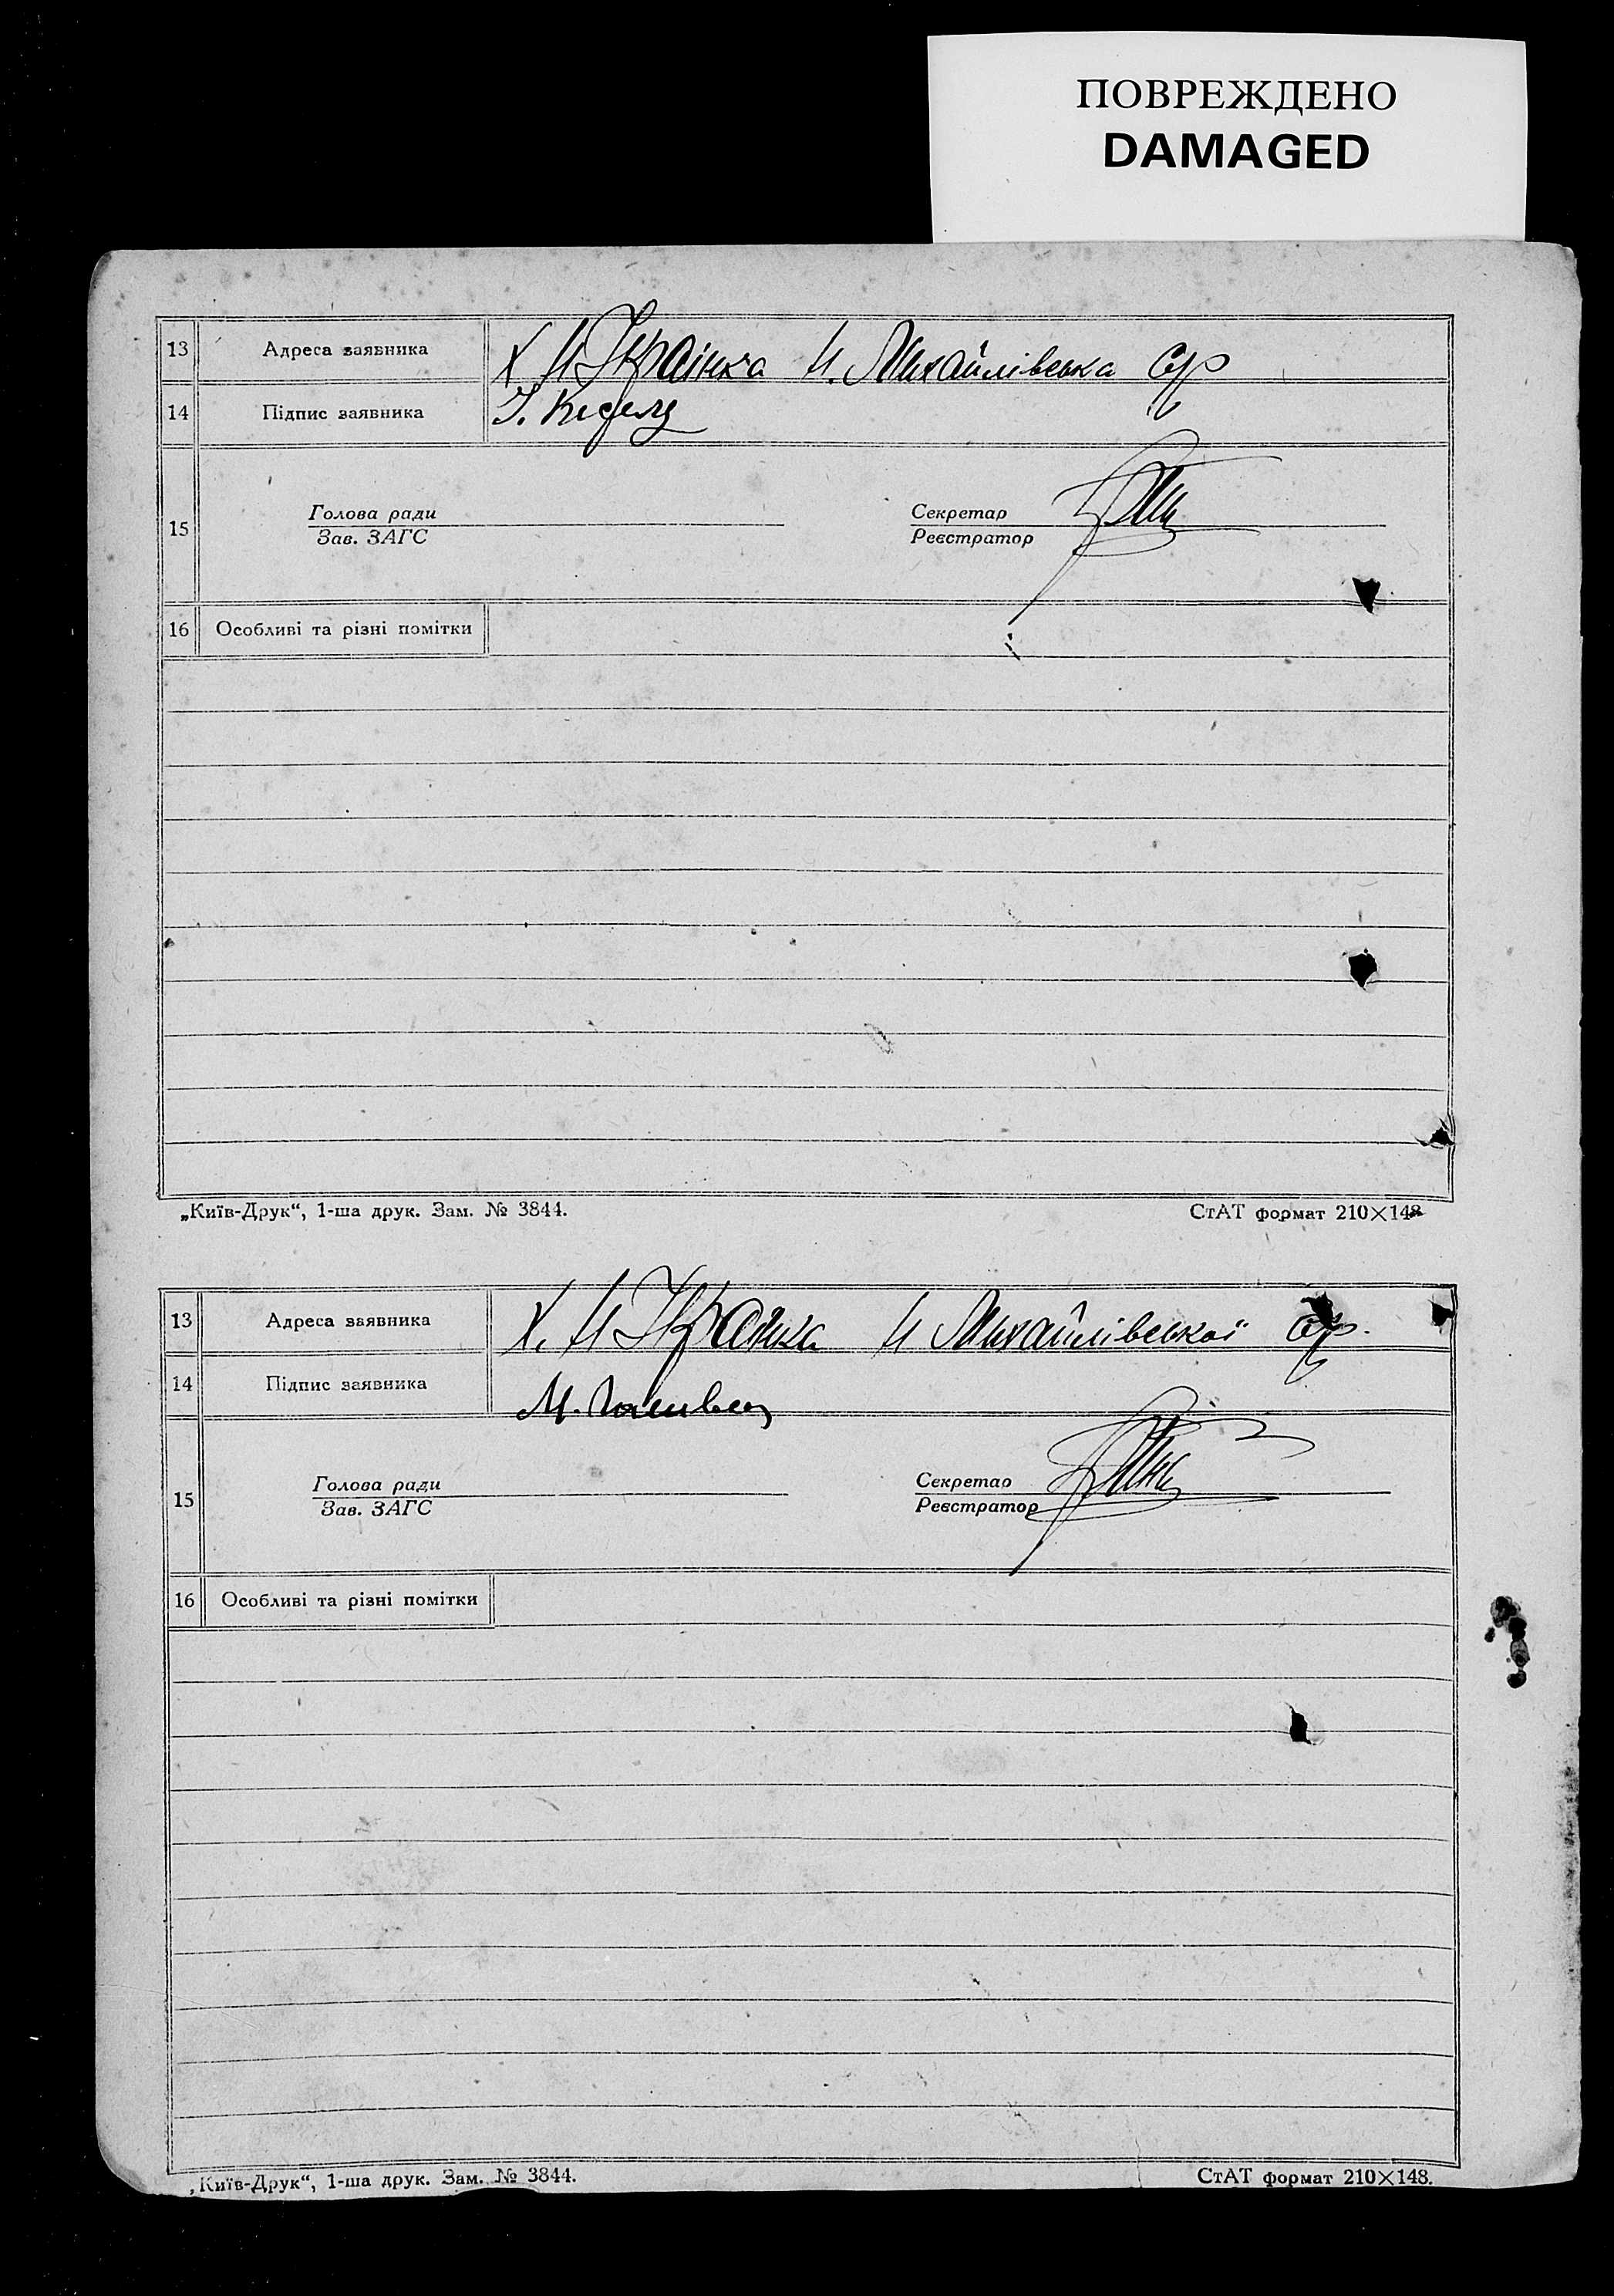 ПОВРЕЖДЕНО
DAMAGED
13 Адреса заявника Х Н Українка Н. Михайлівська с/р
14 Підпис заявника
15 Голова ради Секретар
Зав. ЗАГС Реєстратор
16 Особливі та різні помітки
„Київ-Друк“, 1-ша друк. Зам. № 3844. СтАТ формат 210×148
13 Адреса заявника Х. Н Українка Н Михайлівської с/р.
14 Підпис заявника М.
15 Голова ради Секретар
Зав. ЗАГС Реєстратор
16 Особливі та різні помітки
„Київ-Друк“, 1-ша друк. Зам. № 3844. СтАТ формат 210×148.